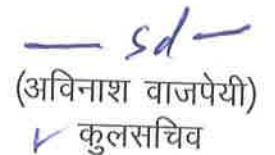 — sd —
(अविनाश वाजपेयी)
कुलसचिव